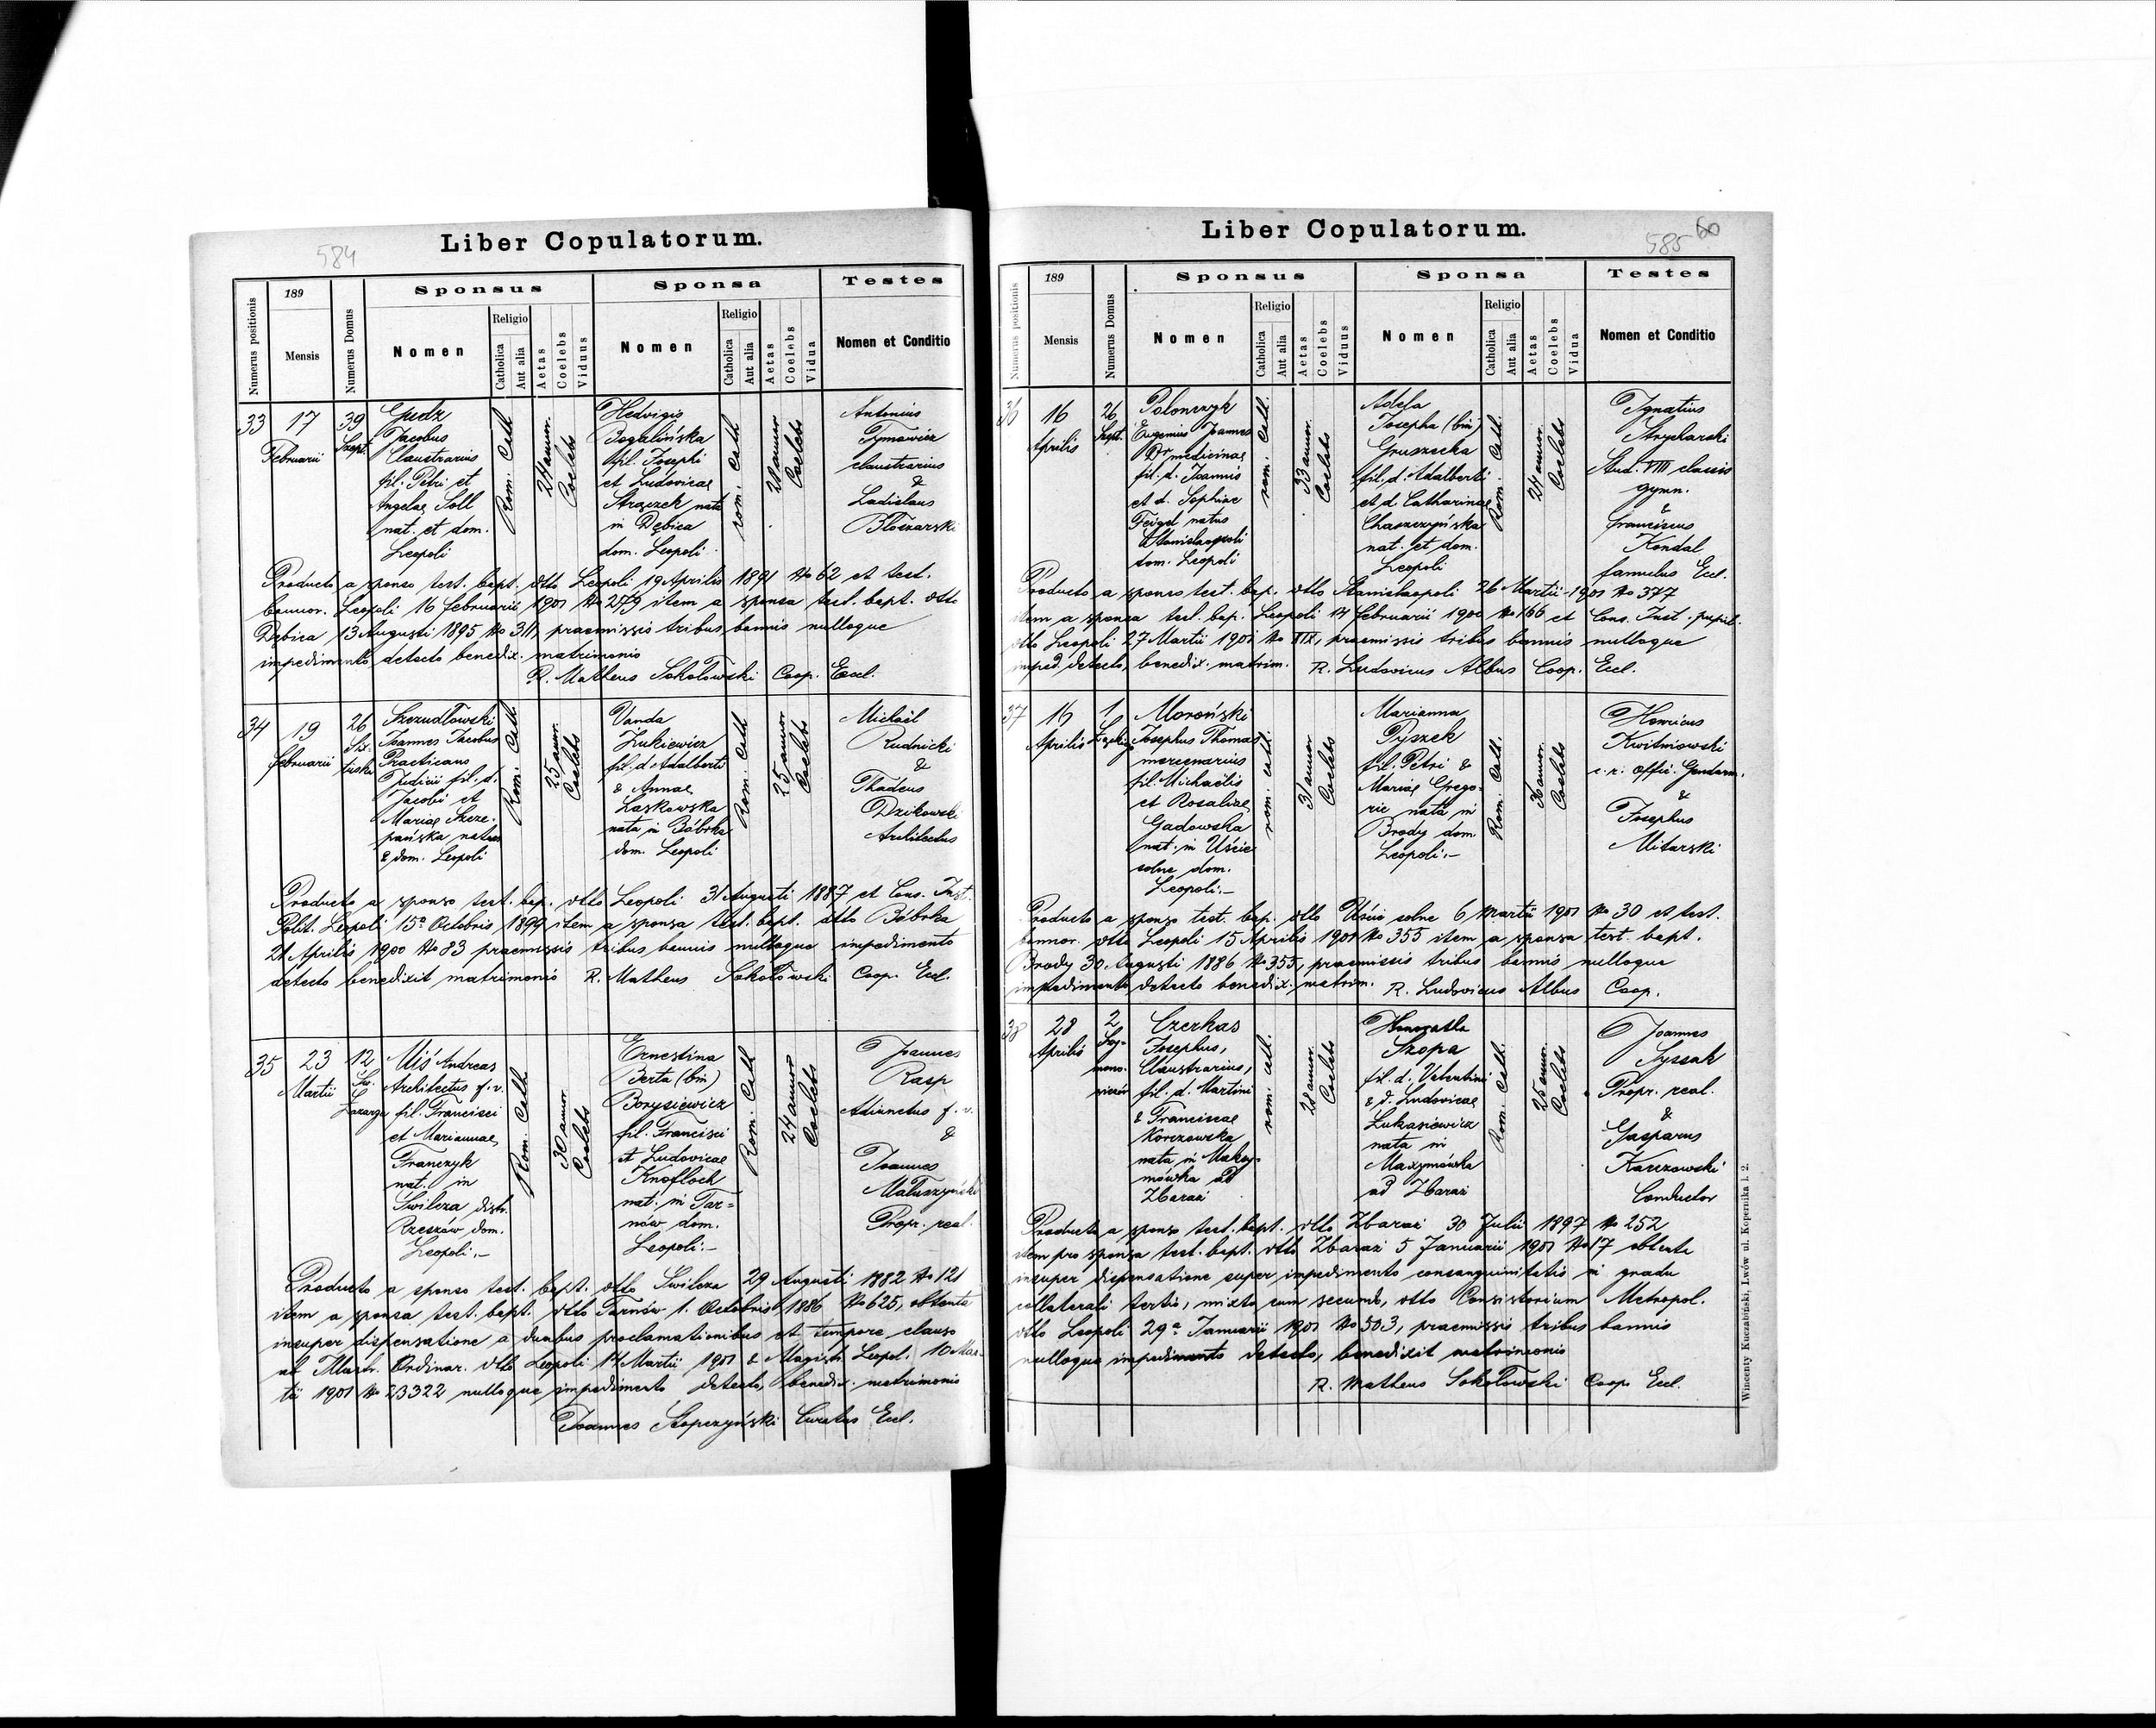 584
Liber Copulatorum.
Numerus positionis
189
Mensis
Numerus Domus
Sponsus
Nomen
Religio
Catholica
Aut alia
Aetas
Coelebs
Viduus
Sponsa
Nomen
Religio
Catholica
Aut alia
Aetas
Coelebs
Vidua
Testes
Nomen et Conditio
33
17
Februarii
39
Szept.
Gudz
Jacobus
Claustrarius
fil. Petri et
Angelae Soll
nat. et dom.
Leopoli
Rom. Cath
24 annor.
Coelebs
Hedvigis
Bogalińska
fil. Josephi
et Ludovicae
Strączek nata
in Dębica
dom. Leopoli
rom. Cath
28 annor
Coelebs
Antonius
Tymowicz
claustrarius
&
Ladislaus
Błoszarski
Producto a sponso test. bapt. dtto Leopoli 19 Aprilis 1891 No 62 et test.
bannor. Leopoli 16 februarii 1901 No 279 item a sponsa test. bapt. dtto
Dębica 13 Augusti 1895 No 311, praemissis tribus bannis nulloque
impedimento detecto benedix. matrimonio
R. Matheus Sokołowski Coop. Eccl.
34
19
februarii
26
Szczudłowski
Joannes Jacobus
Practicans
Judicii fil. d.
Jacobi et
Mariae Szcze-
pańska natus
& dom. Leopoli
Rom. Cath
25 annor.
Coelebs
Vanda
Żukiewicz
fil. d. Adalberti
& Annae
Laskowska
nata in Bóbrka
dom. Leopoli
Rom. Cath
25 annor
Coelebs
Michaël
Rudnicki
&
Thadeus
Dzikowski
Architectus
Producto a sponso test. bap. dtto Leopoli 31 Augusti 1887 et Cons. Inst.
Polit. Leopoli 15a Octobris 1899 item a sponsa test. bapt. dtto Bóbrka
21 Aprilis 1900 No 83 praemissis tribus bannis nulloque impedimento
detecto benedixit matrimonio R. Matheus Sokołowski Coop. Eccl.
35
23
Martii
12
Św.
Łazarza
Uiś Andreas
Architectus f. v.
fil. Francisci
et Mariannae
Franczyk
nat. in
Świlcza distr.
Rzeszów dom.
Leopoli.-
Rom. Cath
30 annor.
Coelebs
Ernestina
Berta (bin)
Borysiewicz
fil. Francisci
et Ludovicae
Knofloch
nat. in Tar=
nów dom.
Leopoli.-
Rom. Cath
24 annor
Coelebs
Joannes
Rasp
Adiunctus f. v.
&
Joannes
Matuszyński
Propr. real.
Producto a sponso test. bapt. dtto Świlcza 29 Augusti 1882 No 121
item a sponsa test. bapt. dtto Tarnów 1. Octobris 1886 No 625, obtenta
insuper dispensatione a duabus proclamationibus et tempore clauso
ab Illustr. Ordinar. dtto Leopoli 14 Martii 1901 & Magistr. Leopol. 10 Mar-
tii 1901 No 23322 nulloque impedimento detecto, benedix. matrimonio
Joannes Stopczyński Curatus Eccl.
585
60
Liber Copulatorum.
Numerus positionis
189
Mensis
Numerus Domus
Sponsus
Nomen
Religio
Catholica
Aut alia
Aetas
Coelebs
Viduus
Sponsa
Nomen
Religio
Catholica
Aut alia
Aetas
Coelebs
Vidua
Testes
Nomen et Conditio
36
16
Aprilis
26
Szept.
Polonczyk
Eugenius Joannes
Dr medicinae
fil. d. Joannis
et d. Sophiae
Feigel natus
Stanislaopoli
dom. Leopoli
rom. Cath.
33 annor.
Coelebs
Adela
Josepha (bin)
Gruszecka
fil. d. Adalberti
et d. Catharinae
Chaszczyńska
nat. et dom.
Leopoli
Rom. Cath.
24 annor.
Coelebs
Ignatius
Strycharski
Stud. VIII classis
gymn.
&
franciscus
Kondal
famulus Eccl.
Producto a sponso test. bap. dtto Stanislaopoli 26 Martii 1901 No 377
item a sponsa test. bap. Leopoli 14 februarii 1900 No 166 et Cons. Inst. pupil.
dtto Leopoli 27 Martii 1901 No XIX, praemissis tribus bannis nulloque
imped. detecto, benedix. matrim. R. Ludovicus Albus Coop. Eccl.
37
16
Aprilis
1
Moroński
Josephus Thomas
mercenarius
fil. Michaëlis
et Rosaliae
Gadowska
nat. in Uście
solne dom.
Leopoli.-
rom. cath.
31 annor
Coelebs
Marianna
Pyszek
fil. Petri &
Mariae Grego-
ric nata in
Brody dom
Leopoli.-
Rom. Cath.
36 annor.
Coelebs
Henricus
Kwitniowski
c. r. offic. Gendarm.
&
Josephus
Mitarski
Producto a sponso test. bap. dtto Uście solne 6 Martii 1901 No 30 et test.
bannor. dtto Leopoli 15 Aprilis 1901 No 355 item a sponsa test. bapt.
Brody 30 Augusti 1886 No 355, praemissis tribus bannis nulloque
impedimento detecto benedix. matrim. R. Ludovicus Albus Coop.
38
28
Aprilis
2
Szy-
mono-
wiczów
Czerkas
Josephus,
Claustrarius,
fil. d. Martini
& Franciscae
Korczowska
nata in Maksy-
mówka ad
Zbaraż
rom. cath.
28 annor.
Coelebs
Honoratha
Szopa
fil. d. Valentini
& d. Ludovicae
Łukasiewicz
nata in
Maxymówka
ad Zbaraż
Rom. Cath.
25 annor.
Coelebs
Joannes
Syssak
Propr. real.
&
Gasparus
Karczowski
Conductor
Producto a sponso test. bapt. dtto Zbaraż 30 Julii 1897 No 252
item pro sponsa test. bapt. dtto Zbaraż 5 Januarii 1901 No 17 obtenta
insuper dispensatione super impedimento consanguinitatis in gradu
collaterali tertio, mixto cum secundo, dtto Consistorium Metropol.
dtto Leopoli 29a Januarii 1901 No 503, praemissis tribus bannis
nulloque impedimento detecto, benedixit matrimonio
R. Matheus Sokołowski Coop. Eccl.
Wincenty Kuczabiński, Lwów ul. Kopernika l. 2.